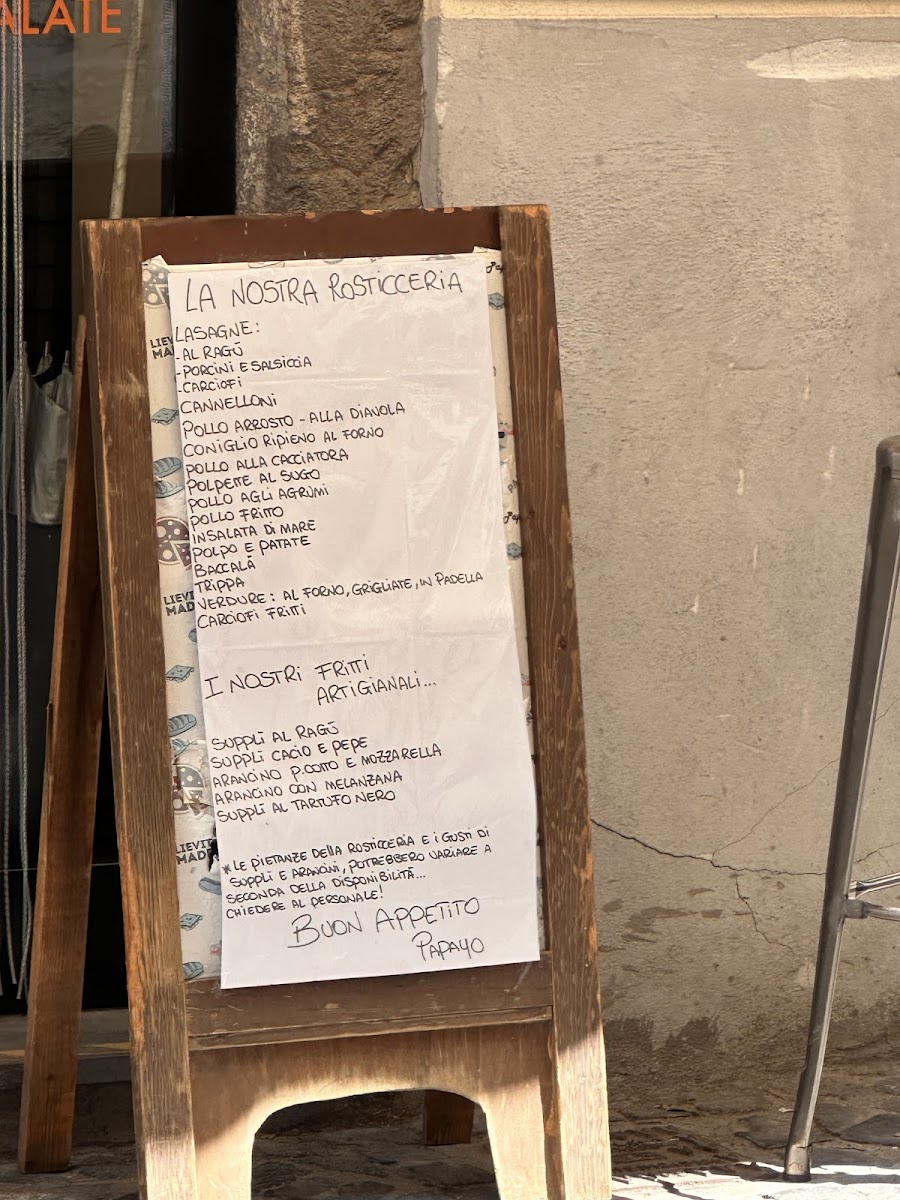 ALATE
LA NOSTRA ROSTICCERIA
LASAGNE:
-AL RAGÙ
-PORCINI E SALSICCIA
-CARCIOFI
CANNELLONI
POLLO ARROSTO - ALLA DIAVOLA
CONIGLIO RIPIENO AL FORNO
POLLO ALLA CACCIATORA
POLPETTE AL SUGO
POLLO AGLI AGRUMI
POLLO FRITTO
INSALATA DI MARE
POLPO E PATATE
BACCALÀ
TRIPPA
VERDURE: AL FORNO, GRIGLIATE, IN PADELLA
CARCIOFI FRITTI
I NOSTRI FRITTI
ARTIGIANALI...
SUPPLÌ AL RAGÙ
SUPPLÌ CACIO E PEPE
ARANCINO P.COTTO E MOZZARELLA
ARANCINO CON MELANZANA
SUPPLÌ AL TARTUFO NERO
*LE PIETANZE DELLA ROSTICCERIA E I GUSTI DI
SUPPLÌ E ARANCINI, POTREBBERO VARIARE A
SECONDA DELLA DISPONIBILITÀ...
CHIEDERE AL PERSONALE!
BUON APPETITO
PAPAYO
LIEV
MA
LIEVI
MAD
LIEVIT
MAD